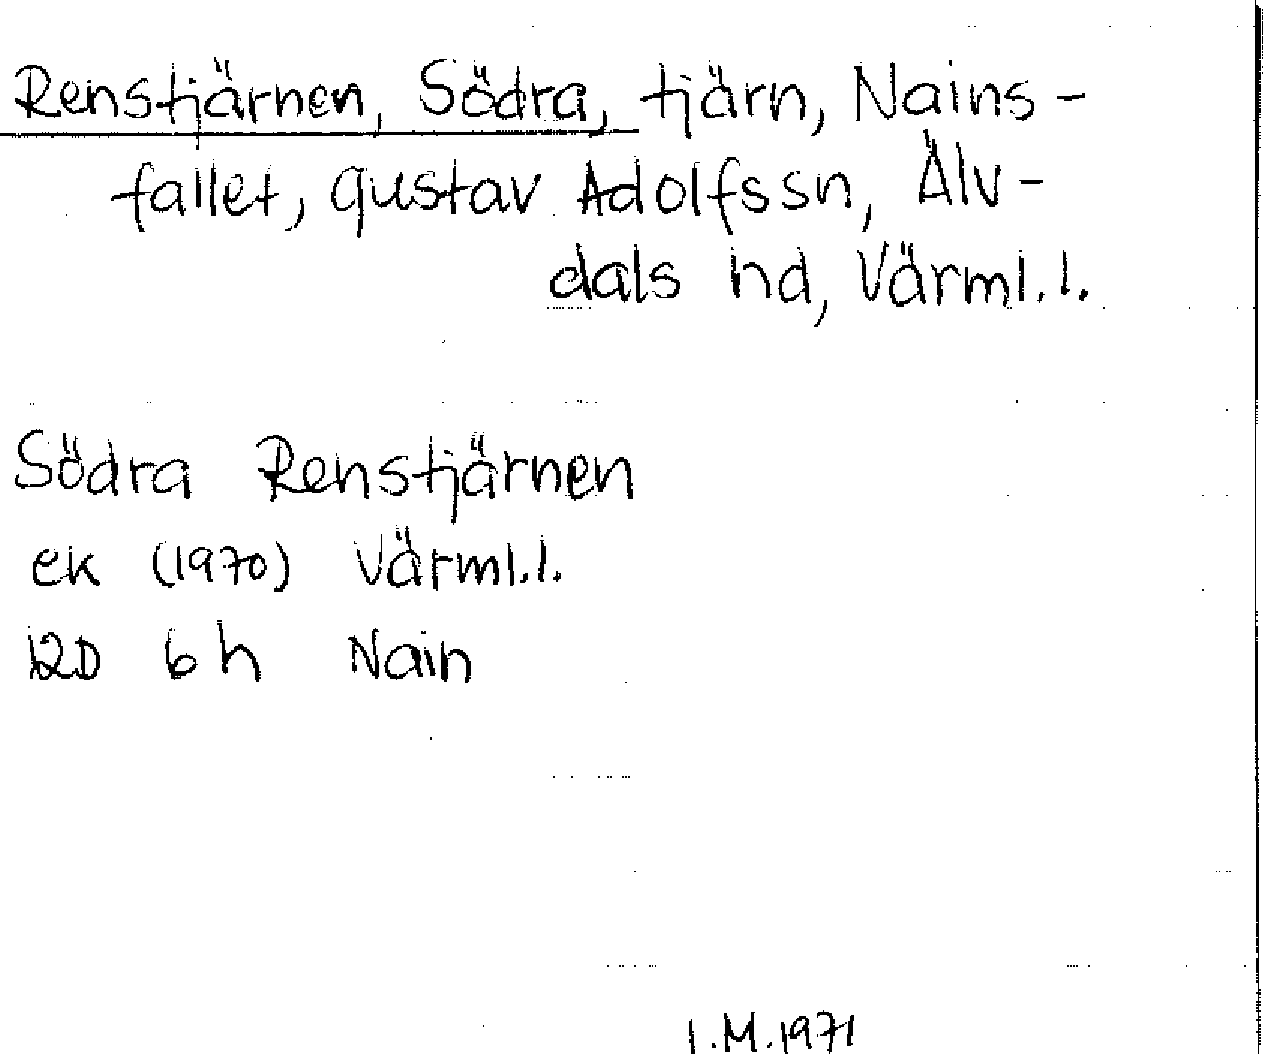 Renstjärnen, Södra, tjärn, Nains-
fallet, Gustav Adolfssn, Älv-
dals hd, Värml.l.
Södra Renstjärnen
ek (1970) Värml.l.
12D 6h Nain
I.M.1971